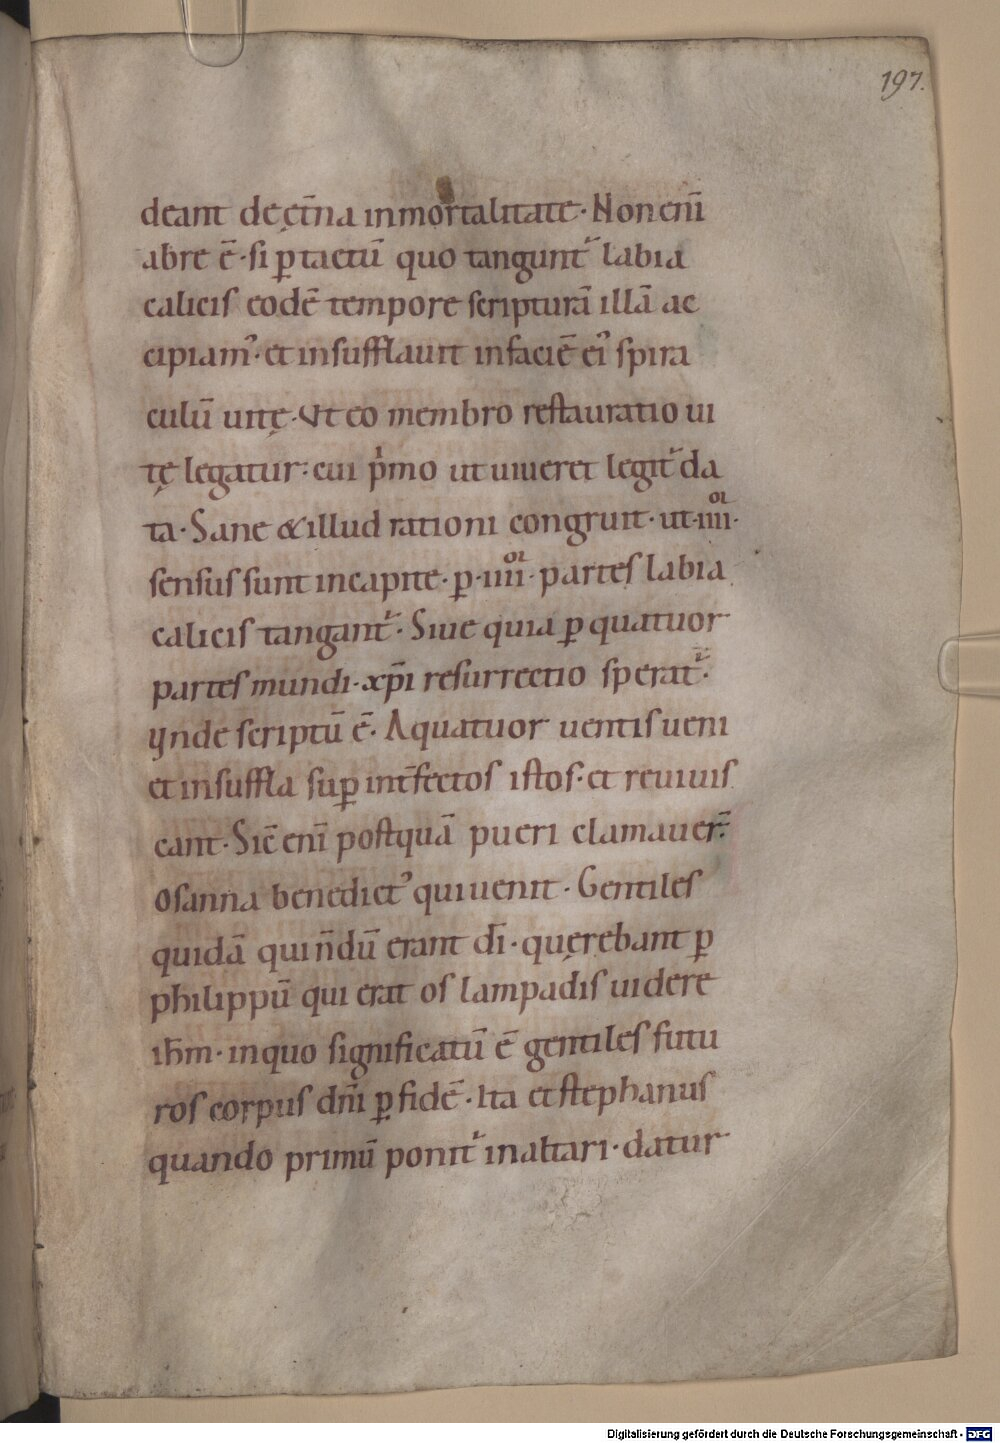 197.
deant de ęt̄na inmortalitate · Non enī
abre ē · si p̱ tactū quo tangunt᷑ labia
calicis eodē tempore scripturā illā ac
cipiam᾽ · et insufflauit in faciē ei᾽ spira
culū uitę · Vt eo membro restauratio ui
tę legatur : cui p͛mo ut uiueret legit᷑ da
ta · Sane &illud rationi congruit · ut ·iiiiᵒʳ·
sensus sunt incapite · ꝑ ·iiiiᵒʳ· partes labia
calicis tangant᷑ · Siue quia ꝑ quatuor
partes mundi · xp̄i resurrectio sperat᷑ ·
Ynde scriptū ē · Aquatuor uentis ueni
et insuffla suꝑ int̄fectos istos · et reuiuis
cant · Sic̄ enī postquā pueri clamauer̄ :
osanna benedict᾽ qui uenit · Gentiles
quidā qui n̄dū erant dī · quęrebant ꝑ
philippū qui erat os lampadis uidere
ih̄m · inquo significatū ē gentiles futu
ros corpus dn̄i ꝑ fidē · Ita et stephanus
quando primū ponit᷑ inaltari · datur
Digitalisierung gefördert durch die Deutsche Forschungsgemeinschaft - DFG